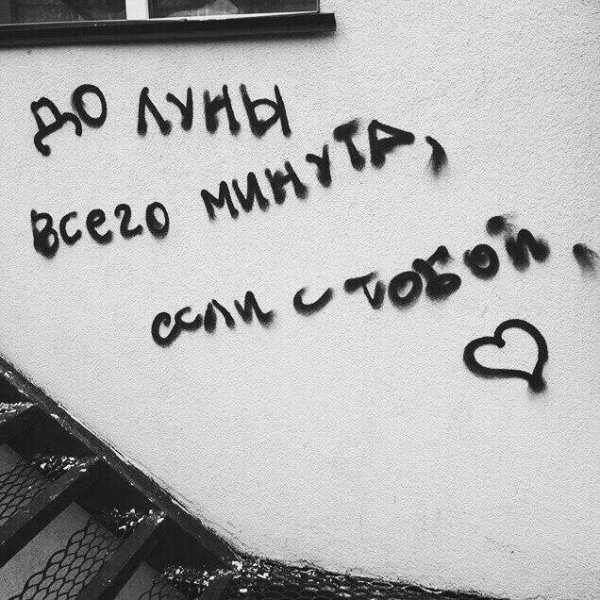 ДО ЛУНЫ
всего минута,
если с тобой.